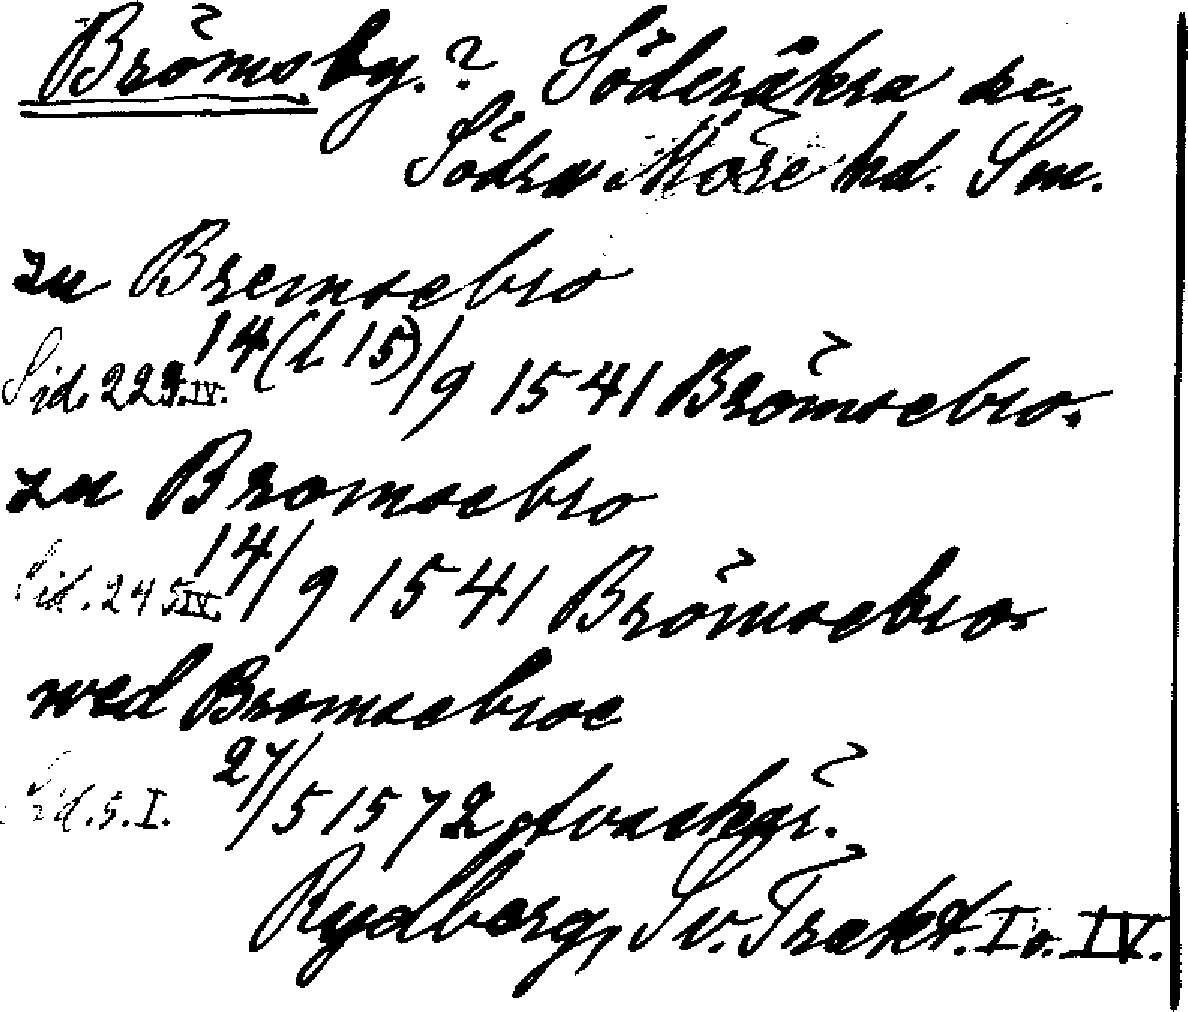 Brömsby.? Söderåkra sn.
Södra Möre hd. Sm.
zu Bremsebro
Sid. 229.IV. 14 (l. 15)/9 1541 Brömsebro.
zu Bromsebro
Sid. 245 IV. 14/9 1541 Brömsebro.
wed Bromsebroe
Sid. 5. I. 27/5 1572
Rydberg, Sv. Trakt. I o. IV.